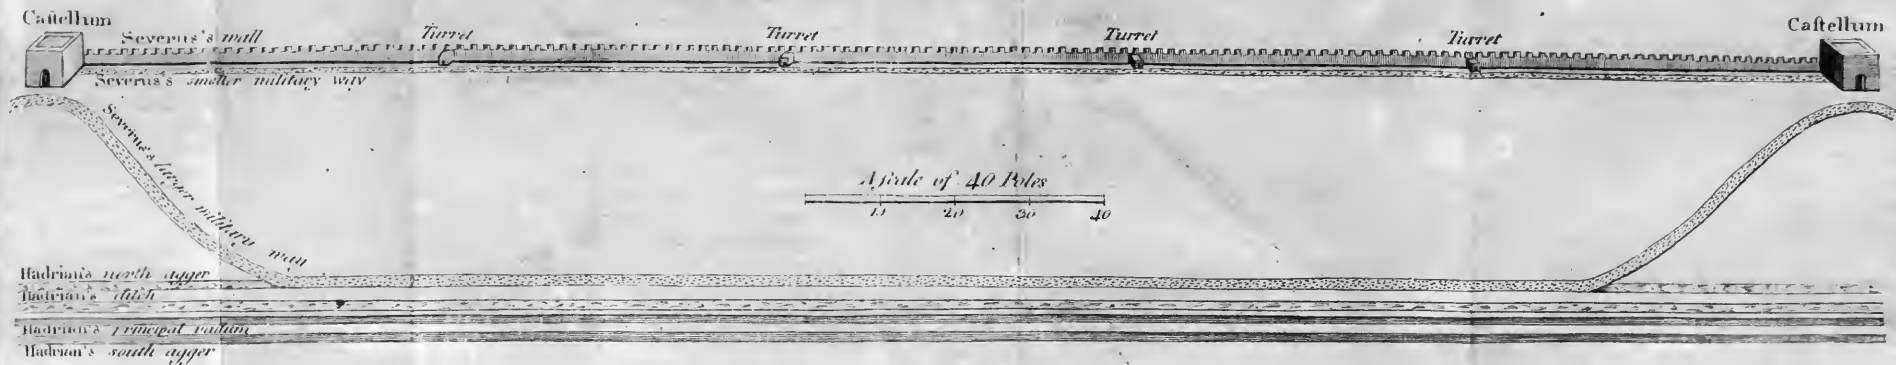 Caſtellum
Severus's wall
Turret
Turret
Turret
Turret
Caſtellum
Severus's smaller military way
Severus's larger military way
A ſcale of 40 Poles
10 20 30 40
Hadrian's north agger
Hadrian's ditch
Hadrian's principal vallum
Hadrian's south agger